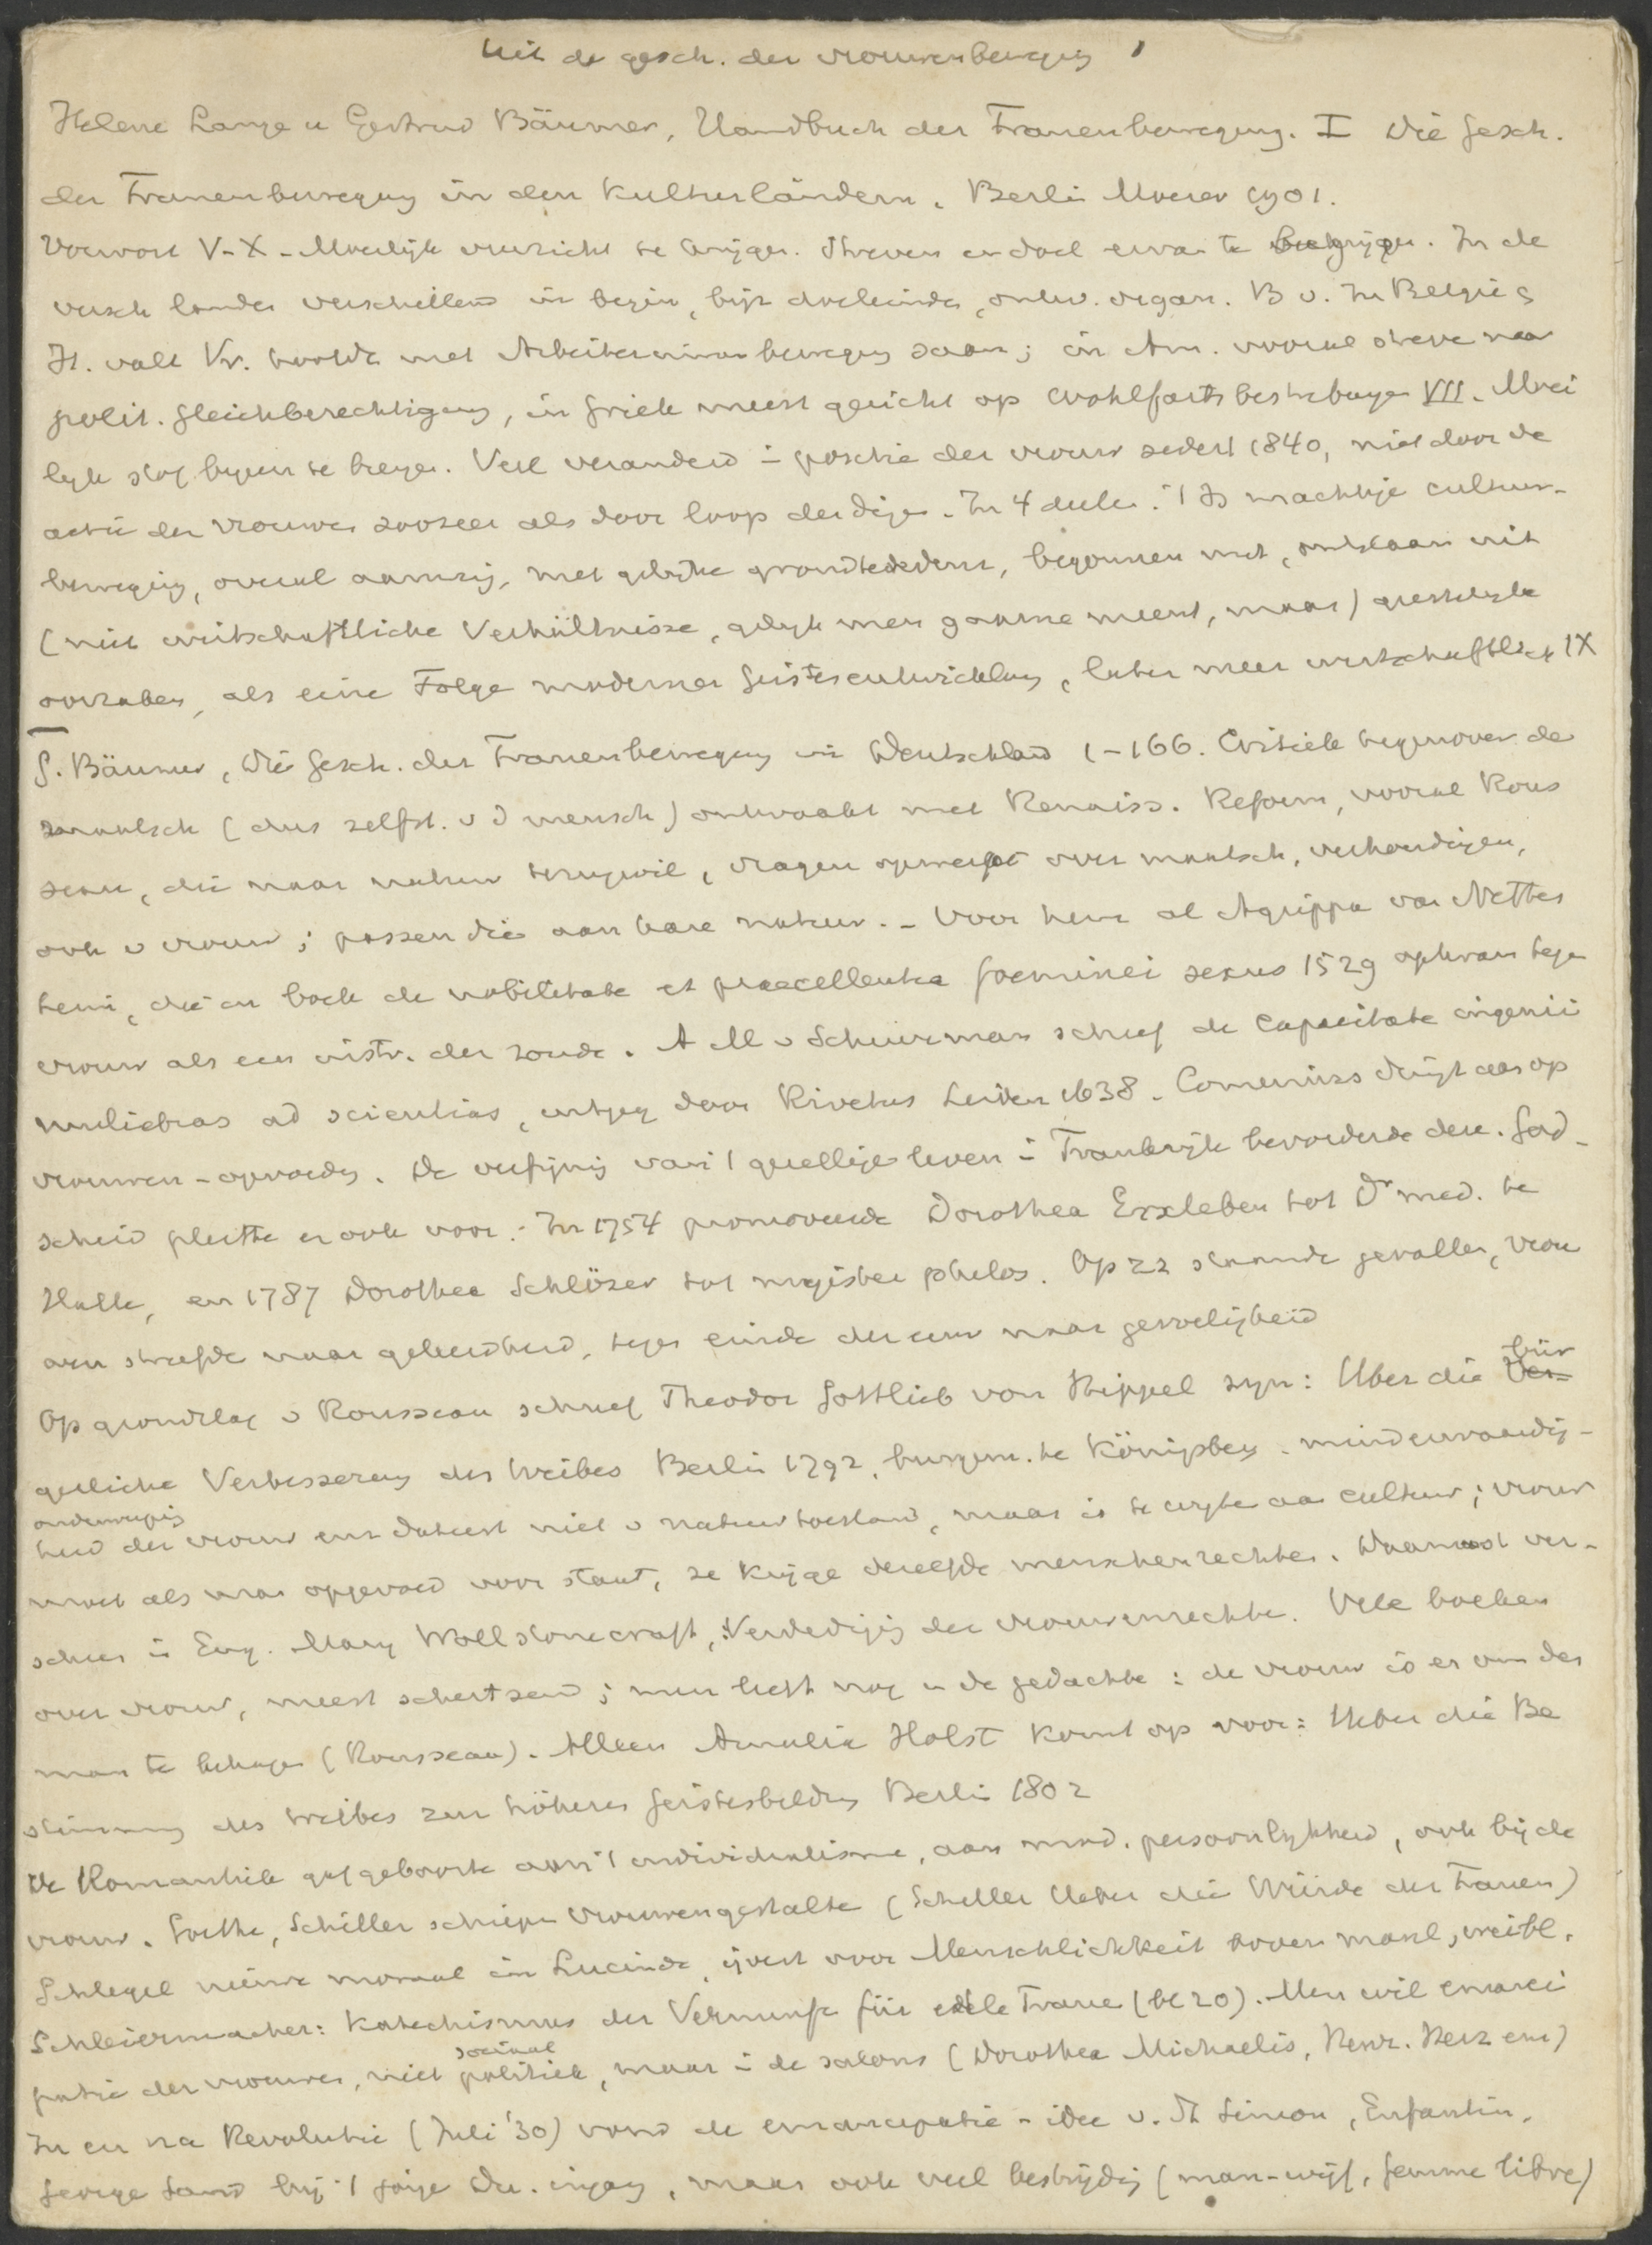 Uit de gesch. der vrouwenbeweging 1
Helene Lange u Gertrud Bäumer, Handbuch der Frauenbewegung. I Die Gesch.
der Frauenbewegung in den Kulturländern, Berlin Moeser 1901.
Vorwort V-X - Moeilijk overzicht te krijgen. Streven en doel ervan te begrijpen. In de
versch landen verschillend in begin, bijz doeleinden, ontw. organ. B v. In België &
It. valt Vr. hoofdz met Arbeiterinnenbewegung saam; in Am. vooral streven naar
polit. Gleichberechtigung, in Griek meest gericht op Wohlfahrtsbestrebungen VII. Moei
lijk stof bijeen te brengen. Veel veranderd in positie der vrouw sedert 1840, niet door de
actie der vrouwen zoozeer als door loop der dingen. In 4 deelen. 't Is machtige cultuur-
beweging, overal aanwezig, met gelijke grondgedachten, begonnen met, ontstaan uit
(niet wirtschaftliche Verhältnisse, gelijk men gaarne meent, maar) geestelijke
oorzaken, als eine Folge moderner Geistesentwicklung, later meer wirtschaftlich IX
G. Bäumer, Die Gesch. der Frauenbewegung in Deutschland 1-166. Critiek tegenover de
maatsch (dus zelfst. v d mensch) ontwaakt met Renaiss. Reform, vooral Rous
seau, die naar natuur terugwil, vragen opwerpt over maatsch, verhoudingen,
ook v vrouw; passen die aan hare natuur. - Voor hem al Agrippa van Nettes
heim, die in boek de nobilitate et praecellentia foeminei sexus 1529 opkwam tegen
vrouw als een instr. der zonde. A M v Schuurman schreef de capacitate ingenii
muliebras ad scientias, uitgeg door Rivetus Leiden 1638. Comenius dringt aan op
vrouwen-opvoeding. De verfijning van 't gezellige leven in Frankrijk bevorderde deze. God-
scheid pleitte er ook voor. In 1754 promoveerde Dorothea Erxleben tot Dr med. te
Halle, en 1787 Dorothea Schlözer tot magister philos. Op zz staande gevallen, vrou
wen streefde naar geleerdheid, tegen einde der eeuw naar gevoeligheid
Op grondslag v Rousseau schreef Theodor Gottlieb von Hippel zijn: Über die Ver- bür
gerliche Verbesserung des Weibes Berlin 1792, burgem. te Königsberg. minderwaardig-
heid der vrouw enz dateert niet v natuurtoestand, maar is te wijten aan cultuur; vrouw
onderwerping
moet als man opgevoed voor staat, ze krijge dezelfde menschenrechten. Daarnaast ver-
scheen in Eng. Mary Wollstonecraft, Verdediging der vrouwenrechten. Vele boeken
over vrouw, meest schertsend; men leeft nog in de gedachte: de vrouw is er om den
man te behagen (Rousseau). Alleen Amalia Holst komt op voor: Ueber die Be
stimmung des Weibes zur höheren Geistesbildung Berlin 1802
De Romantiek gaf geboorte aan 't individualisme, aan mod. persoonlijkheid, ook bij de
vrouw. Goethe, Schiller schiepen vrouwengestalten (Schiller Ueber die Würde der Frauen)
Schlegel nieuwe moraal in Lucinde, ijvert voor Menschlichkeit boven manl, weibl.
Schleiermacher: Katechismus der Vernunft für edele Fraue (bl 20). Men wil emanci
patie der vrouwen, niet politiek, maar in de salons (Dorothea Michaelis, Henr. Herz enz)
sociaal
In en na Revolutie (Juli '30) vond de emancipatie-idee v. St Simon, Enfantin,
George Sand bij 't jonge Du. ingang, maar ook veel bestrijding (man-wijf, femme libre)